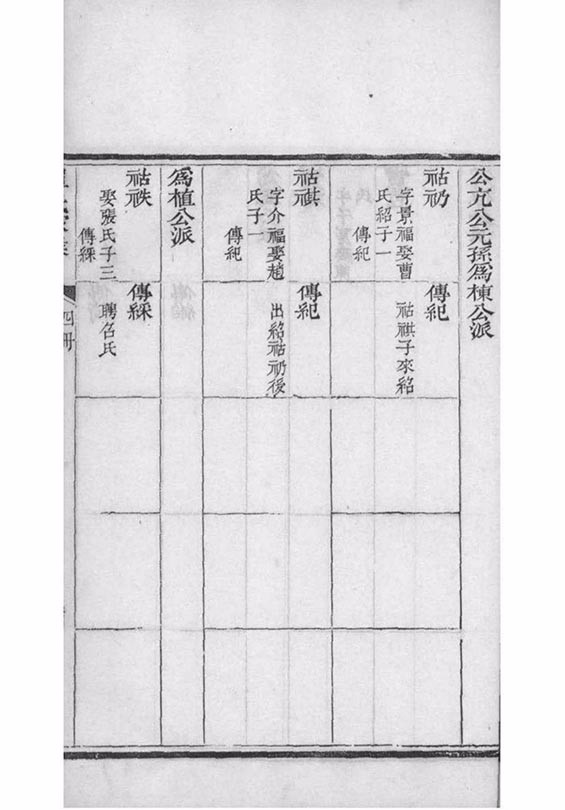 公亢公元孫爲棟公派
祜礽
字景福娶曹
氏紹子一
傳紀
傳紀
祜祺子來紹
祜祺
字介福娶趙
氏子一
傳紀
傳紀
出紹祜礽後
爲植公派
祜祑
娶張氏子三
傳綵
傳綵
聘召氏
四冊